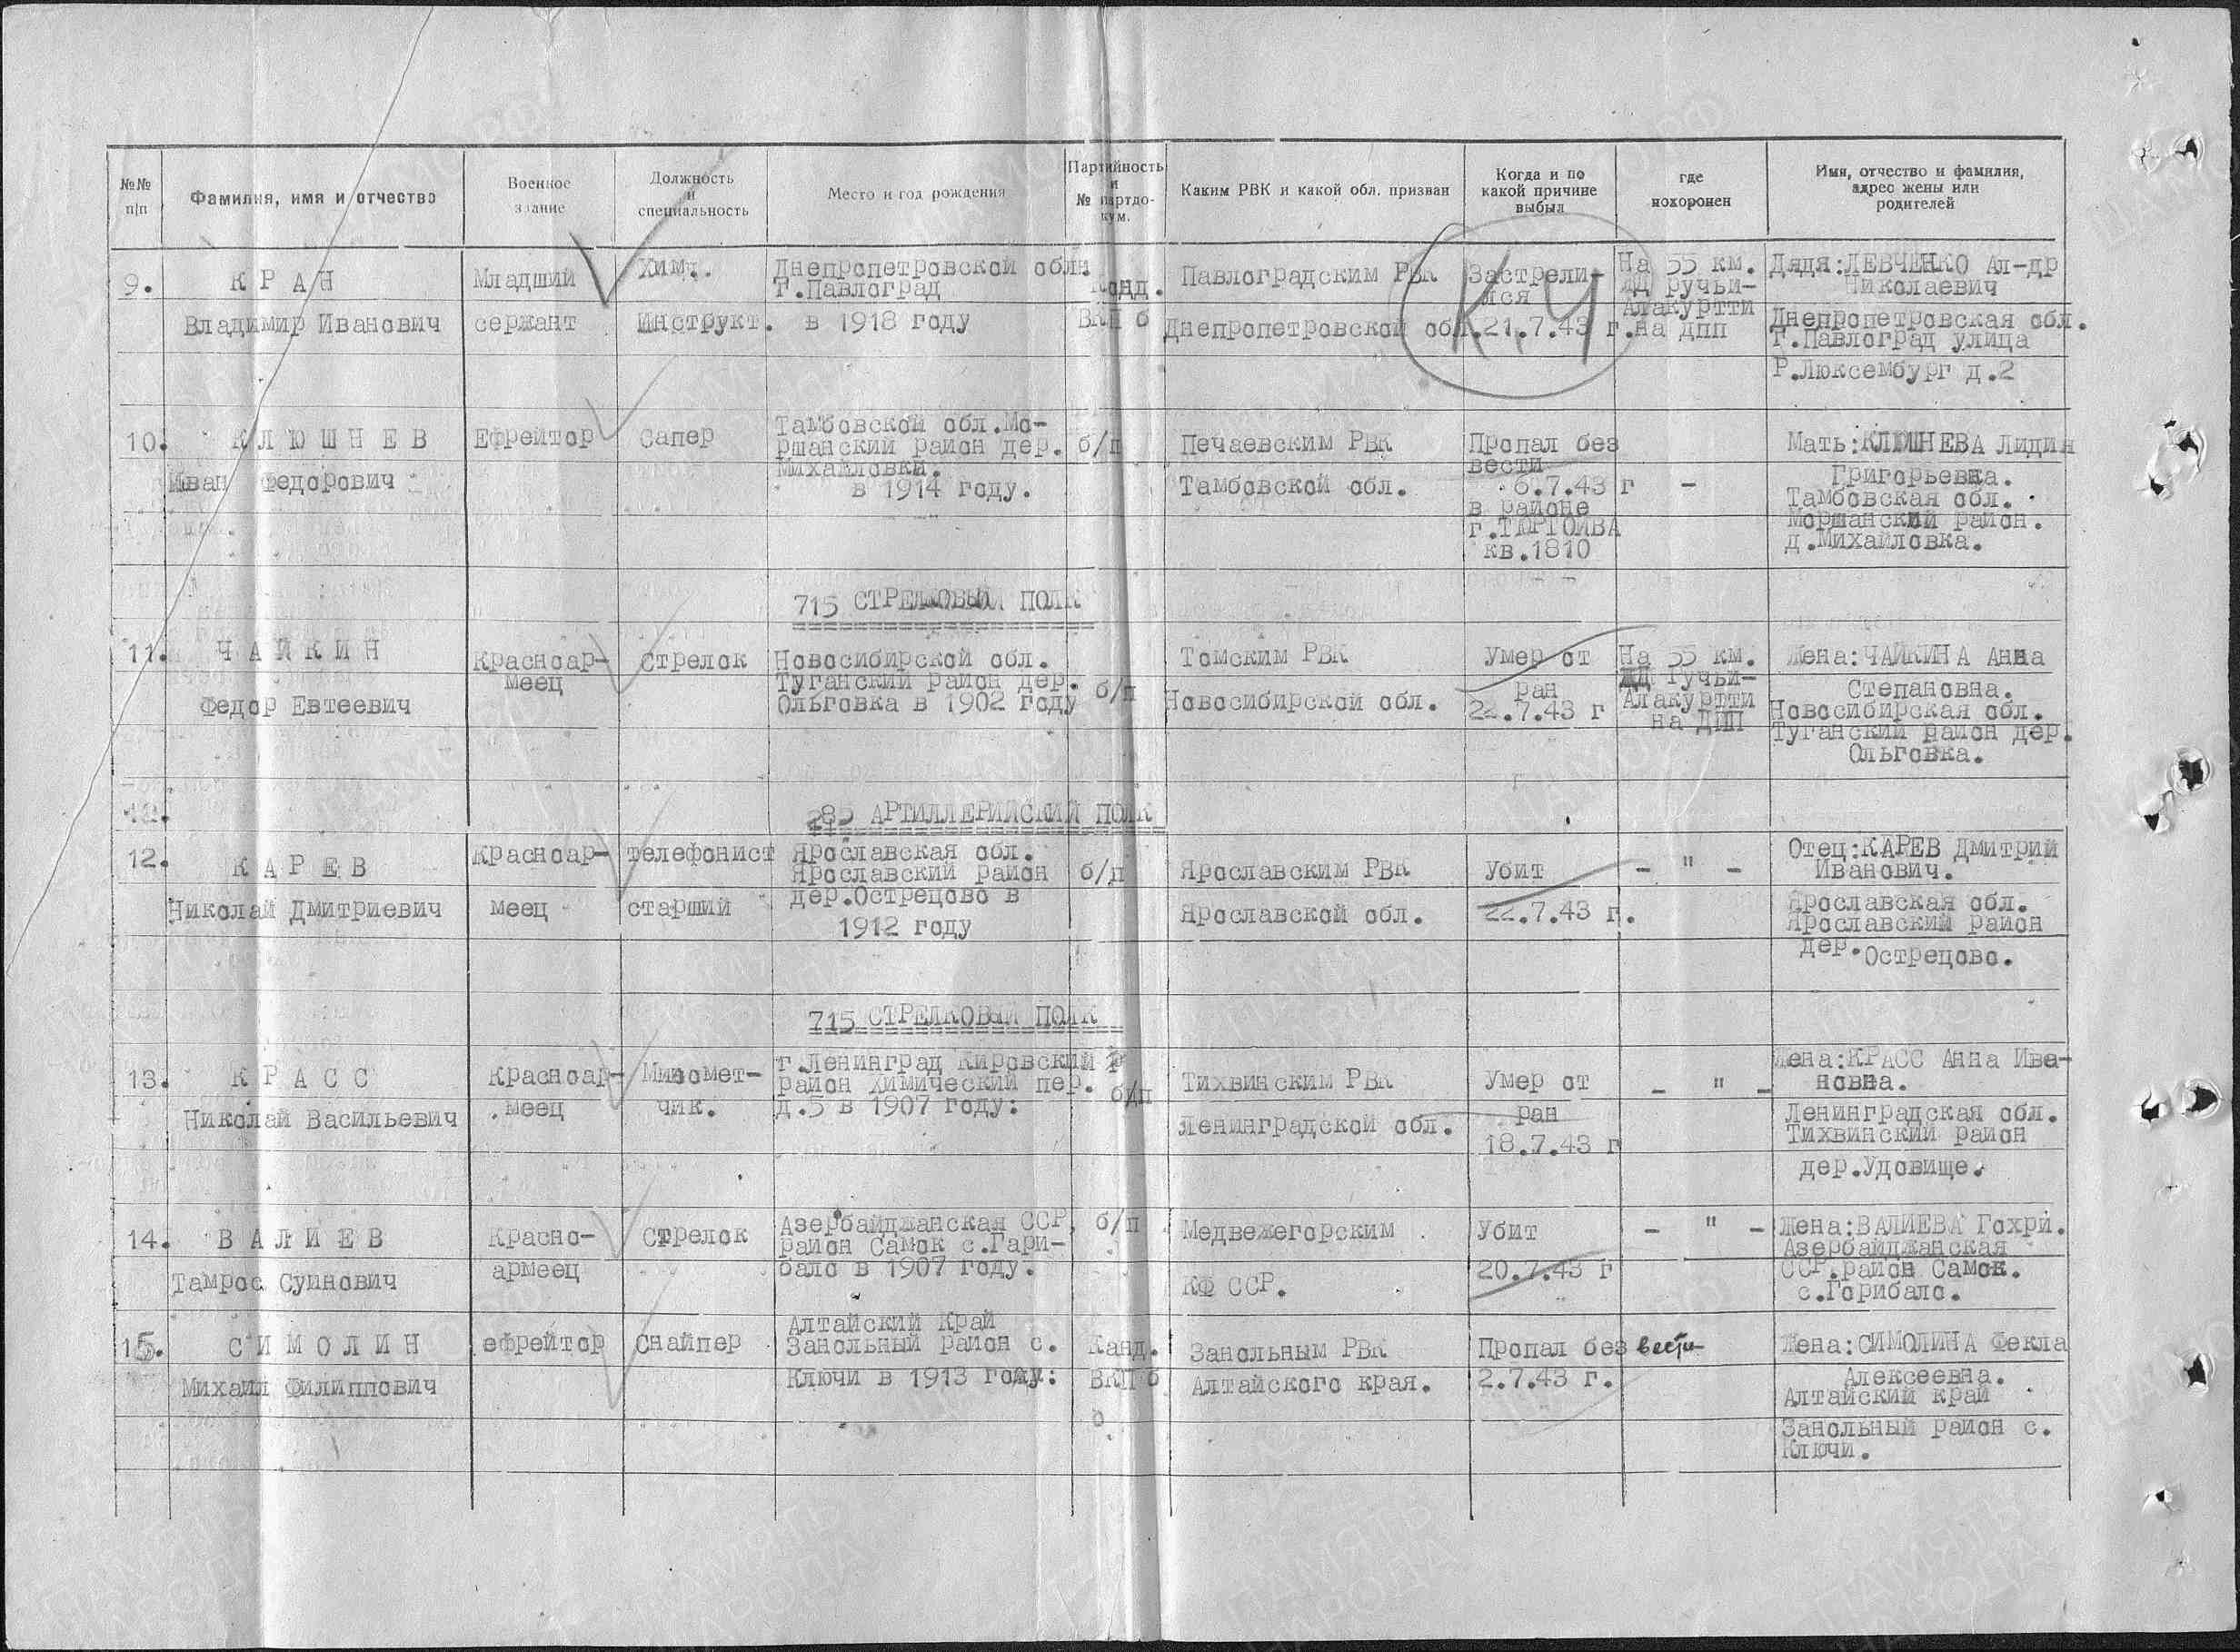 №№ п/п
Фамилия, имя и отчество
Военное звание
Должность и специальность
Место и год рождения
Партийность и № партдокум.
Каким РВК и какой обл. призван
Когда и по какой причине выбыл
где похоронен
Имя, отчество и фамилия, адрес жены или родителей
9.
КРАН
Владимир Иванович
Младший
сержант
Хим..
Инструкт.
Днепропетровской облн
г.Павлоград
в 1918 году
Канд.
ВКП б
Павлоградским РВК
Днепропетровской обл.
Застрели-
лся
21.7.43 г.
КУ
На 55 км.
ЖД ручьи-
Алакуртти
на ДПП
Дядя:ЛЕВЧЕНКО Ал-др
Николаевич
Днепропетровская обл.
г.Павлоград улица
Р.Люксембург д.2
10.
КЛЮШНЕВ
Иван Федорович
Ефрейтор
Сапер
Тамбовской обл.Мо-
ршанский район дер.
Михайловка.
в 1914 году.
б/п
Печаевским РВК
Тамбовской обл.
Пропал без
вести
6.7.43 г
в районе
г.ТЮРТОЙВА
кв.1810
-
Мать:КЛЮШНЕВА Лидия
Григорьевна.
Тамбовская обл.
Моршанский район.
д.Михайловка.
715 СТРЕЛКОВЫЙ ПОЛК
11.
ЧАЙКИН
Федор Евтеевич
Красноар-
меец
Стрелок
Новосибирской обл.
Туганский район дер.
Ольговка в 1902 году
б/п
Томским РВК
Новосибирской обл.
Умер от
ран
22.7.43 г
На 55 км.
ЖД ручьи-
Алакуртти
на ДПП
Жена:ЧАЙКИНА Анна
Степановна.
Новосибирская обл.
Туганский район дер.
Ольговка.
12.
285 АРТИЛЛЕРИЙСКИЙ ПОЛК
12.
КАРЕВ
Николай Дмитриевич
Красноар-
меец
телефонист
старший
Ярославская обл.
Ярославский район
дер.Острецово в
1912 году
б/п
Ярославским РВК
Ярославской обл.
Убит
22.7.43 г.
- " -
Отец:КАРЕВ Дмитрий
Иванович.
Ярославская обл.
Ярославский район
дер.Острецово.
715 СТРЕЛКОВЫЙ ПОЛК
13.
КРАСС
Николай Васильевич
Красноар-
меец
Миномет-
чик.
г.Ленинград Кировский
район Химический пер.
д.5 в 1907 году:
б/п
Тихвинским РВК
Ленинградской обл.
Умер от
ран
18.7.43 г
- " -
Жена:КРАСС Анна Ива-
новна.
Ленинградская обл.
Тихвинский район
дер.Удовище.
14.
ВАЛИЕВ
Тамрос Суинович
Красно-
армеец
Стрелок
Азербайджанская ССР,
район Самок с.Гари-
бало в 1907 году.
б/п
Медвежегорским
КФ ССР.
Убит
20.7.43 г
- " -
Жена:ВАЛИЕВА Гохри.
Азербайджанская
ССР.район Самок.
с.Горибало.
15.
СИМОЛИН
Михаил Филиппович
ефрейтор
Снайпер
Алтайский Край
Занольный район с.
Ключи в 1913 году:
Канд.
ВКП б
Занольным РВК
Алтайского края.
Пропал без вести
2.7.43 г.
Жена:СИМОЛИНА Фекла
Алексеевна.
Алтайский край
Занольный район с.
Ключи.